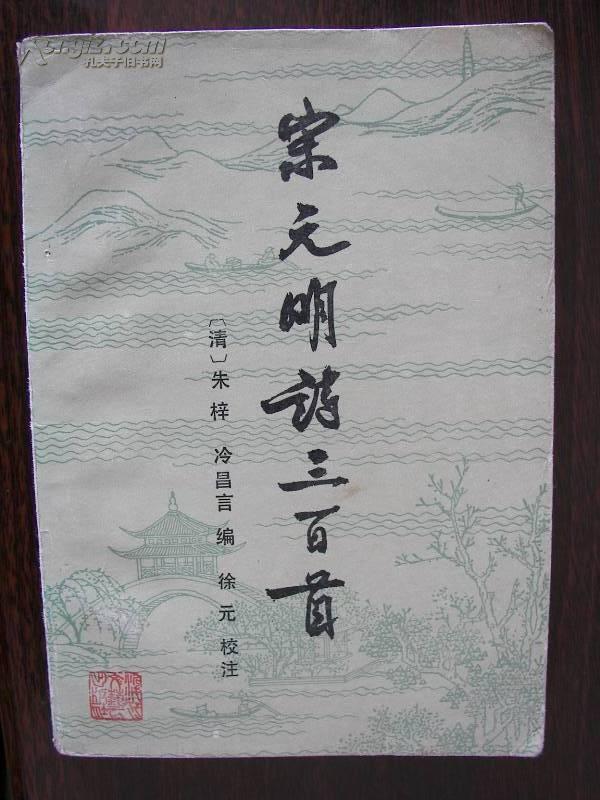 宋元明诗三百首
〔清〕朱梓 冷昌言 编 徐元 校注
孔夫子旧书网